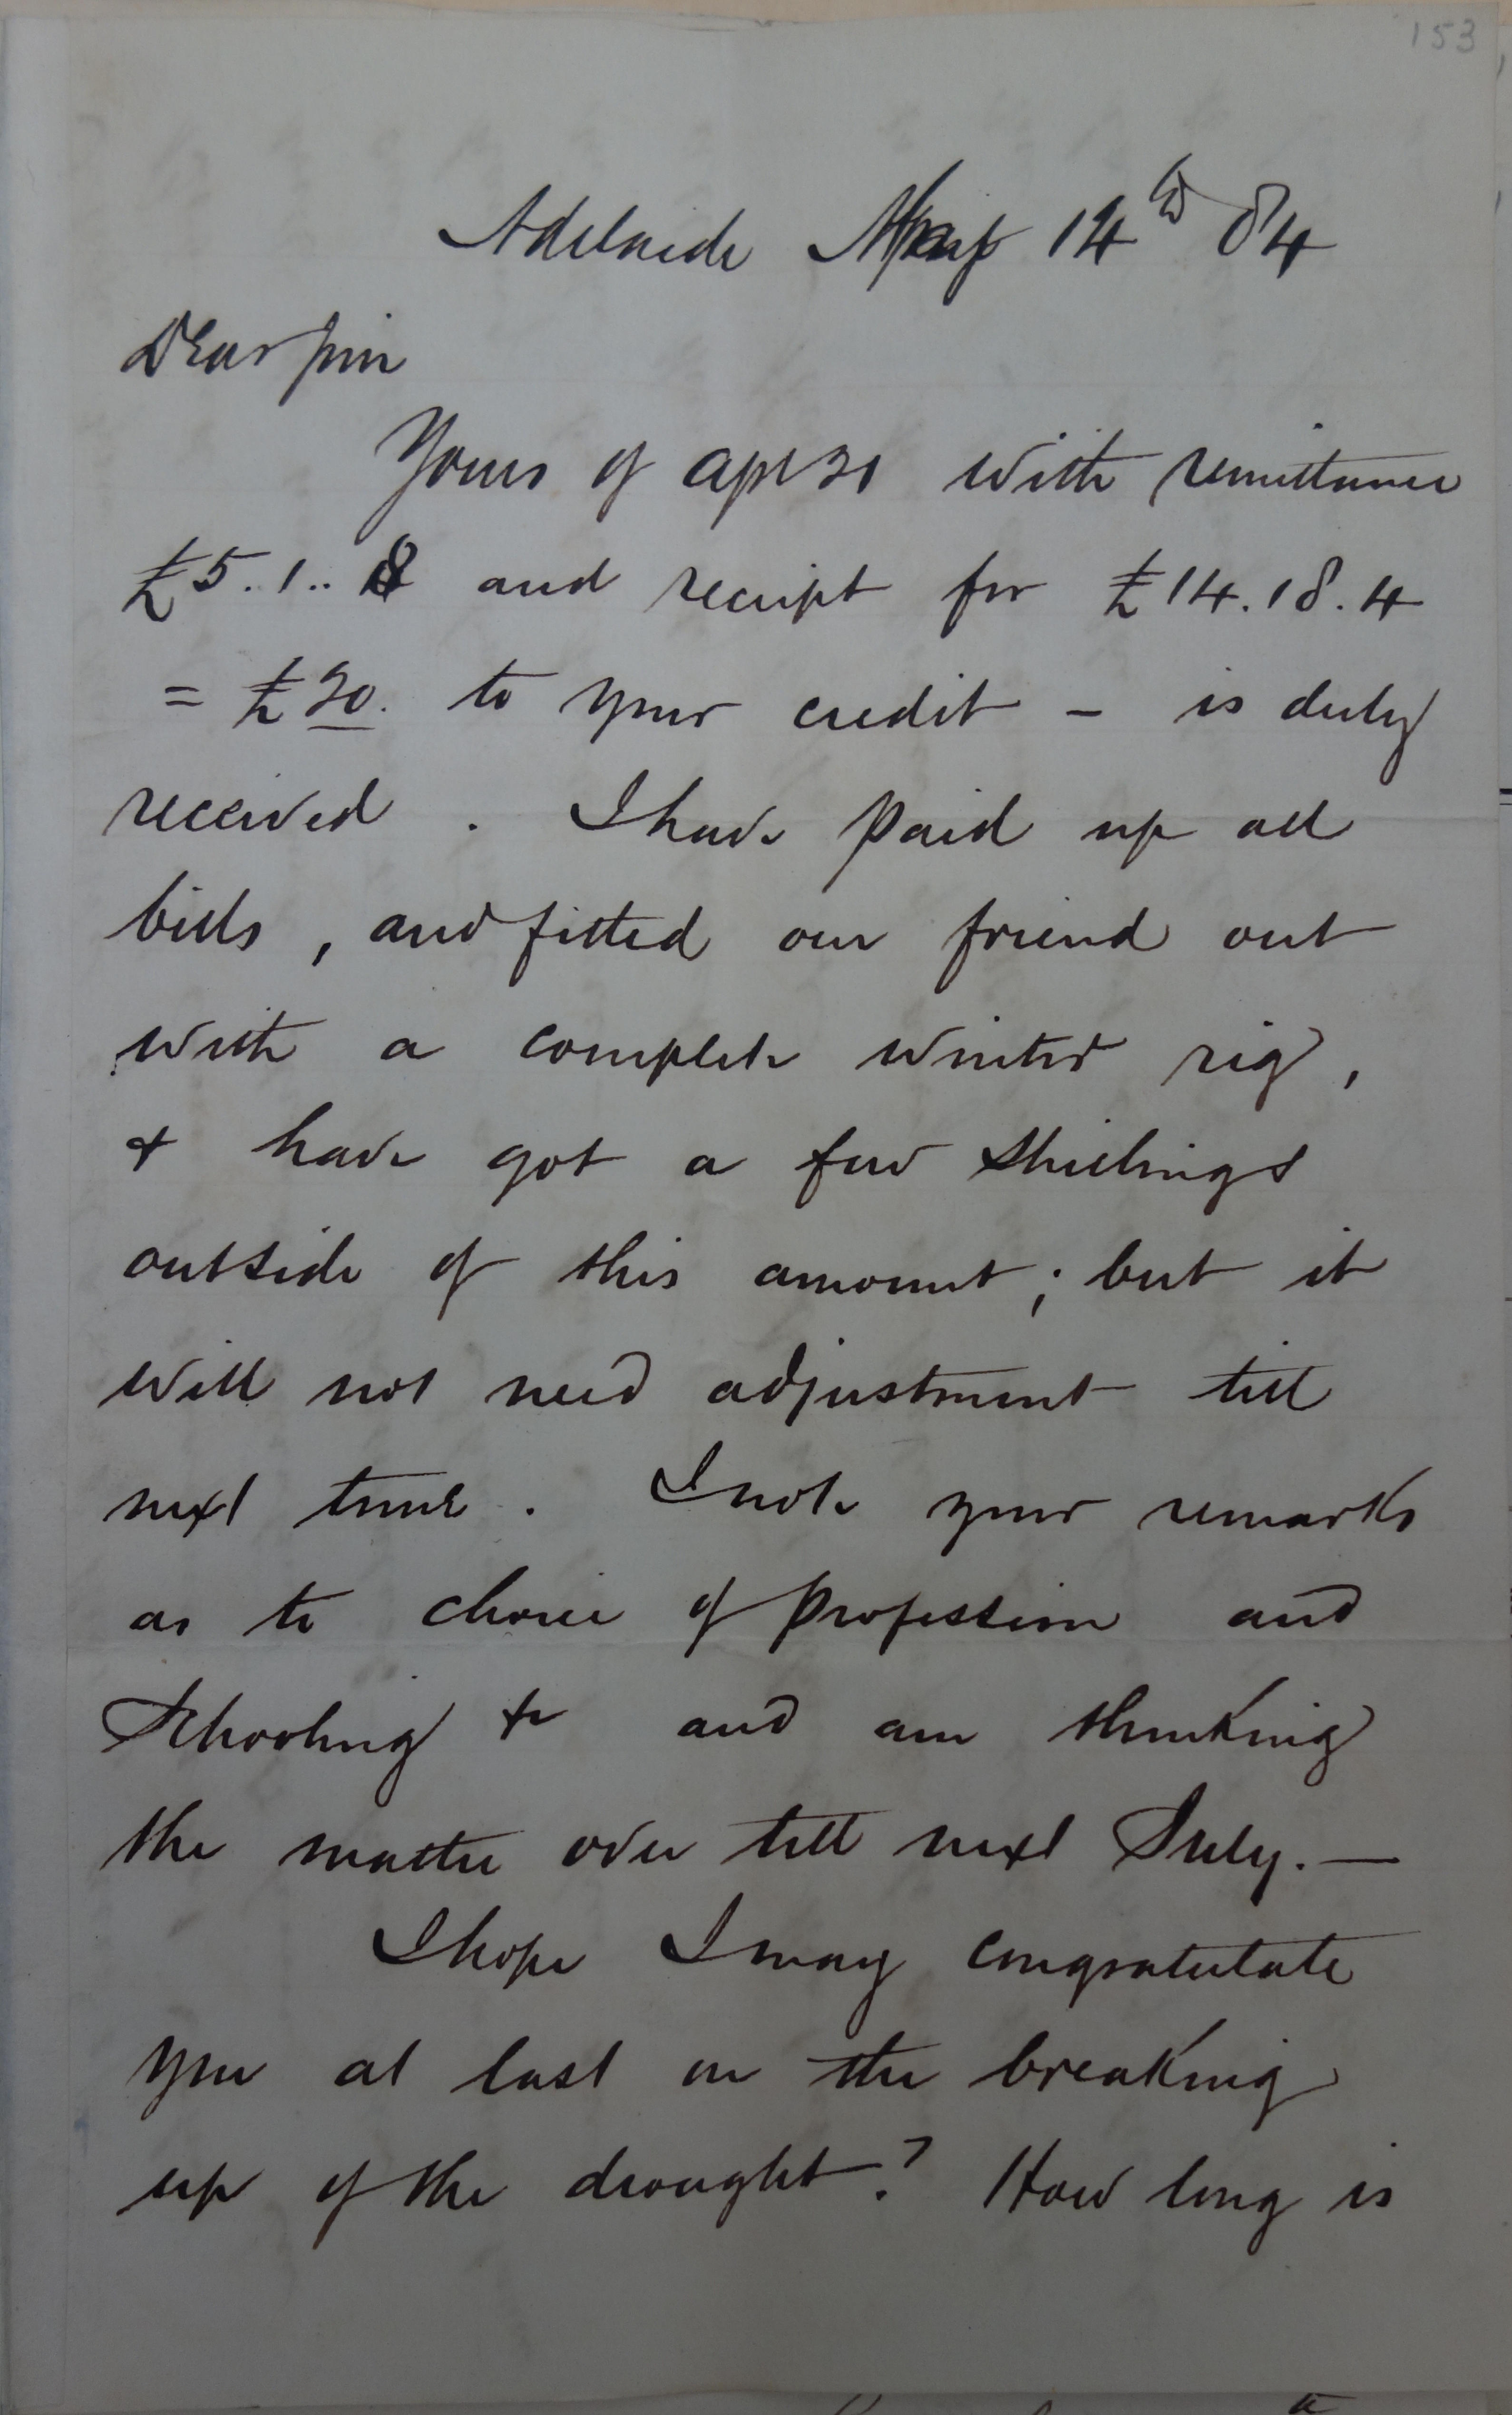 153
Adelaide May 14th 84
Dear Jim
Yours of apl 21 with remittance
£5..1..8 and receipt for £14.18.4
= £20. to your credit – is duly
received . I have paid up all
bills , and fitted our friend out
with a complete winter rig ,
+ have got a few shillings
outside of this amount ; but it
will not need adjustment till
next time . I note your remarks
as to choice of profession and
Schooling &c and am thinking
the matter over till next July. —
I hope I may congratulate
you at last on the breaking
up of the drought ? How long is